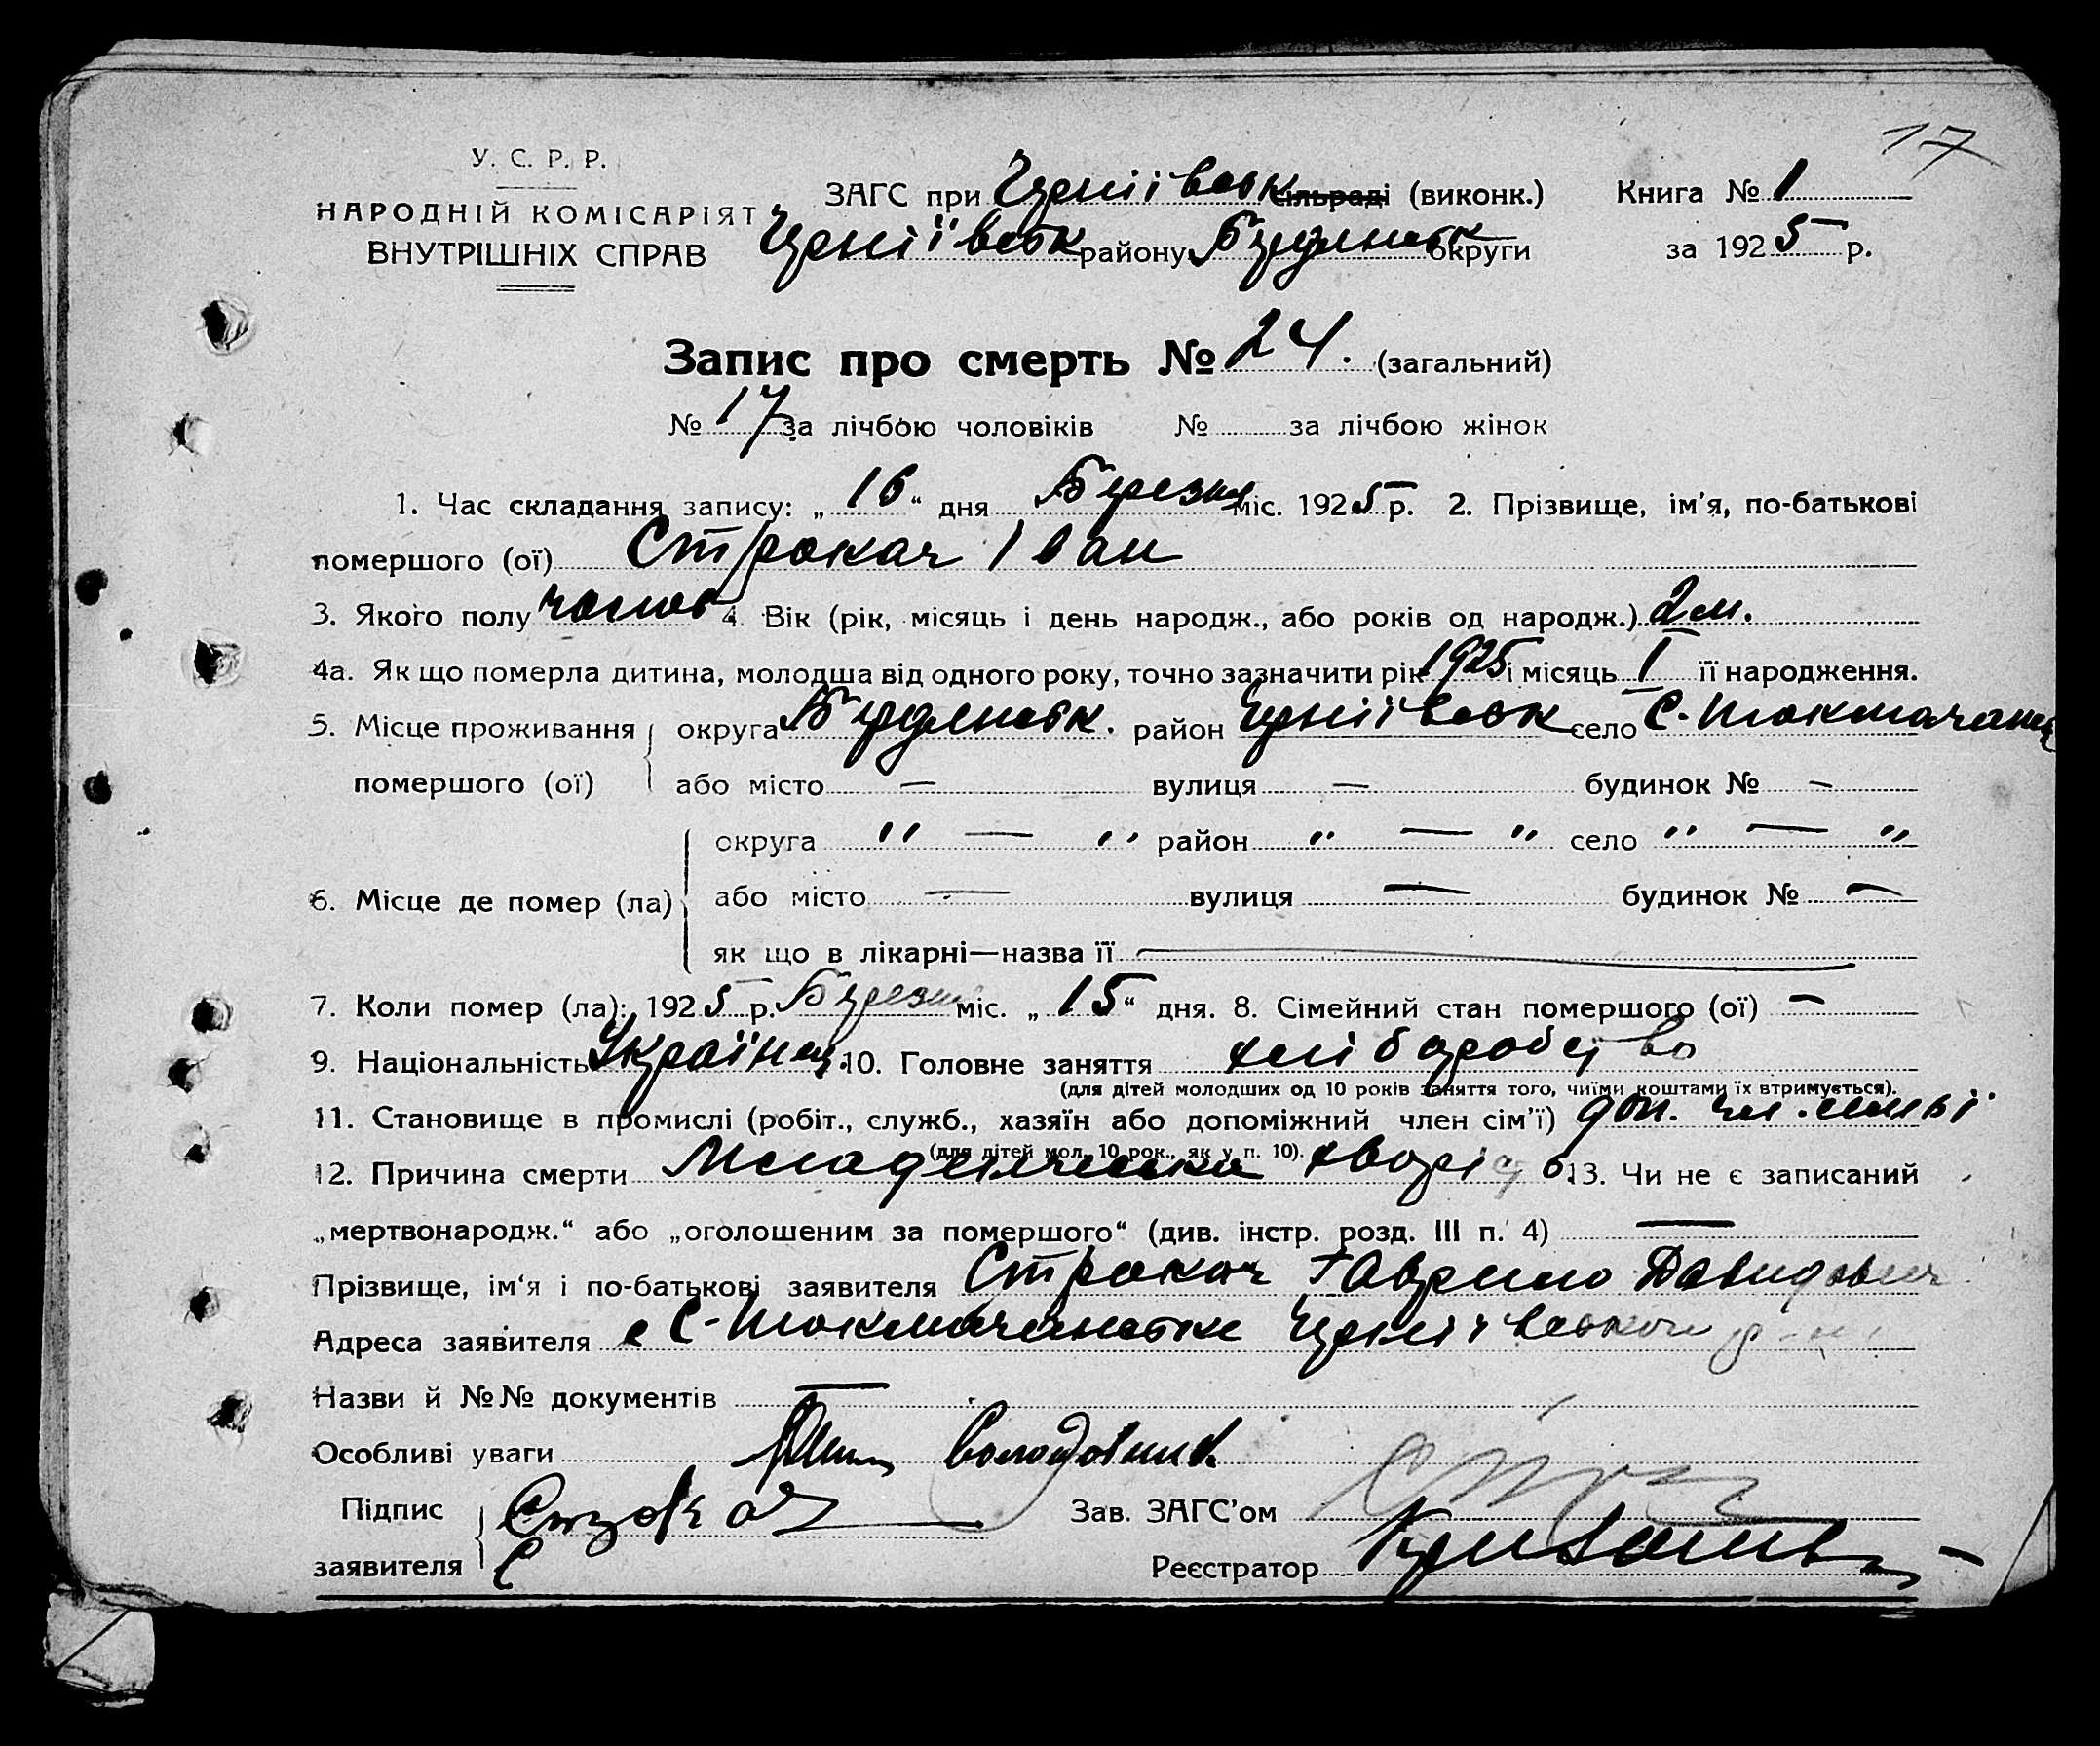 17
У. С. Р. Р.
НАРОДНІЙ КОМІСАРІЯТ
ВНУТРІШНІХ СПРАВ
ЗАГС при Черніївськ сільраді (виконк.) Книга № 1
Черніївськ району Бердянськ округи за 1925 р.
Запис про смерть № 24. (загальний)
№ 17 за лічбою чоловіків № за лічбою жінок
1. Час складання запису: „ 16 “ дня Березня міс. 1925 р. 2. Прізвище, ім'я, по-батькові
помершого (ої) Строкач Іван
3. Якого полу чолов 4. Вік (рік, місяць і день народж., або років од народж.) 2 м.
4а. Як що померла дитина, молодша від одного року, точно зазначити рік 1925 і місяць I її народження.
5. Місце проживання округа Бердянськ. район Черніївськ село С-Токмачанка
помершого (ої) або місто — вулиця — будинок № —
округа " — " район " — " село " — "
6. Місце де помер (ла) або місто — вулиця — будинок № —
як що в лікарні—назва її —
7. Коли помер (ла): 1925 р. Березня міс. „ 15 “ дня. 8. Сімейний стан помершого (ої) —
9. Національність Українец. 10. Головне заняття хліборобство
(для дітей молодших од 10 років заняття того, чиїми коштами їх втримується).
11. Становище в промислі (робіт., служб., хазяїн або допоміжний член сім'ї) доп. чл. сімьї
(для дітей мол. 10 рок., як у п. 10).
12. Причина смерти Младенческа 13. Чи не є записаний
„мертвонародж.“ або „оголошеним за помершого“ (див. інстр. розд. III п. 4) —
Прізвище, ім'я і по-батькові заявителя Строкач Гаврило Давидович
Адреса заявителя с С-Токмачанка Черніївського р-ну
Назви й №№ документів —
Особливі уваги
Підпис Строкач
заявителя
Зав. ЗАГС'ом
Реєстратор